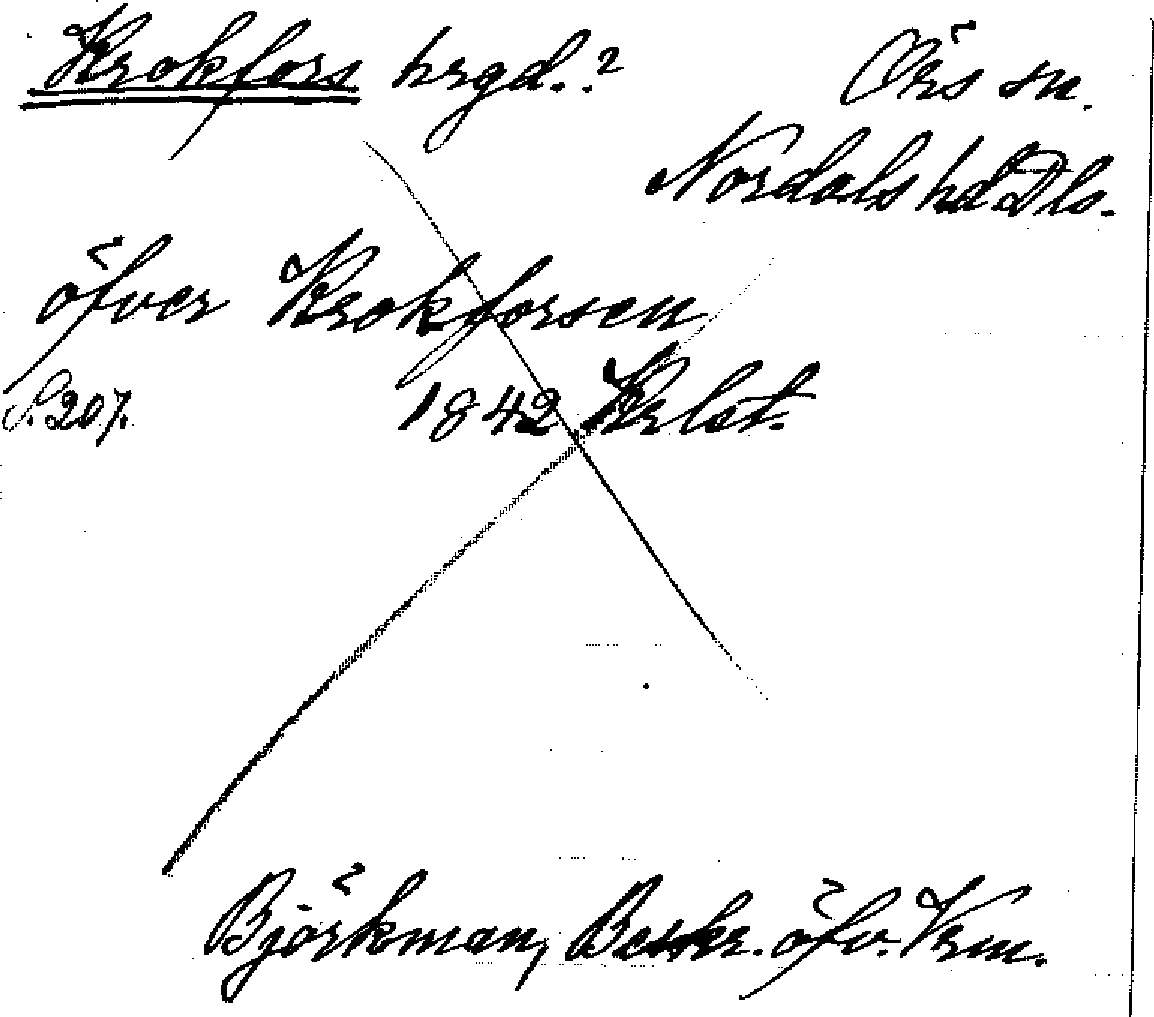 Krokfors hrgd.? Örs sn.
Nordals hd Dls.
öfver Krokforsen
S. 207. 1842 Krlst.
Björkman, Beskr. öfv. Vrm.